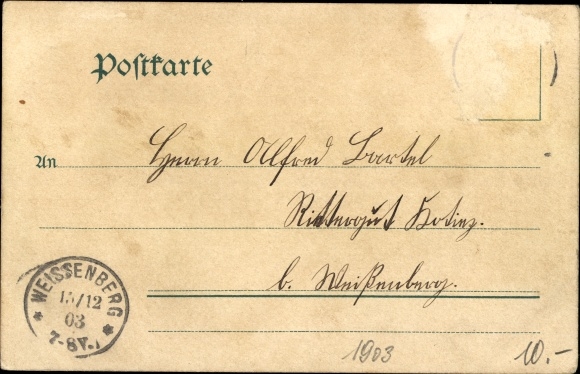 Postkarte
An Herrn Alfred Bartel
Rittergut Kotiez.
b. Weißenberg.
* WEISSENBERG *
15/12
03
7-8V.
1903
10.-